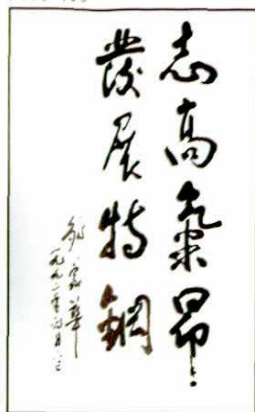 志高氣昂
發展特鋼
鄒家華
一九九二年元月